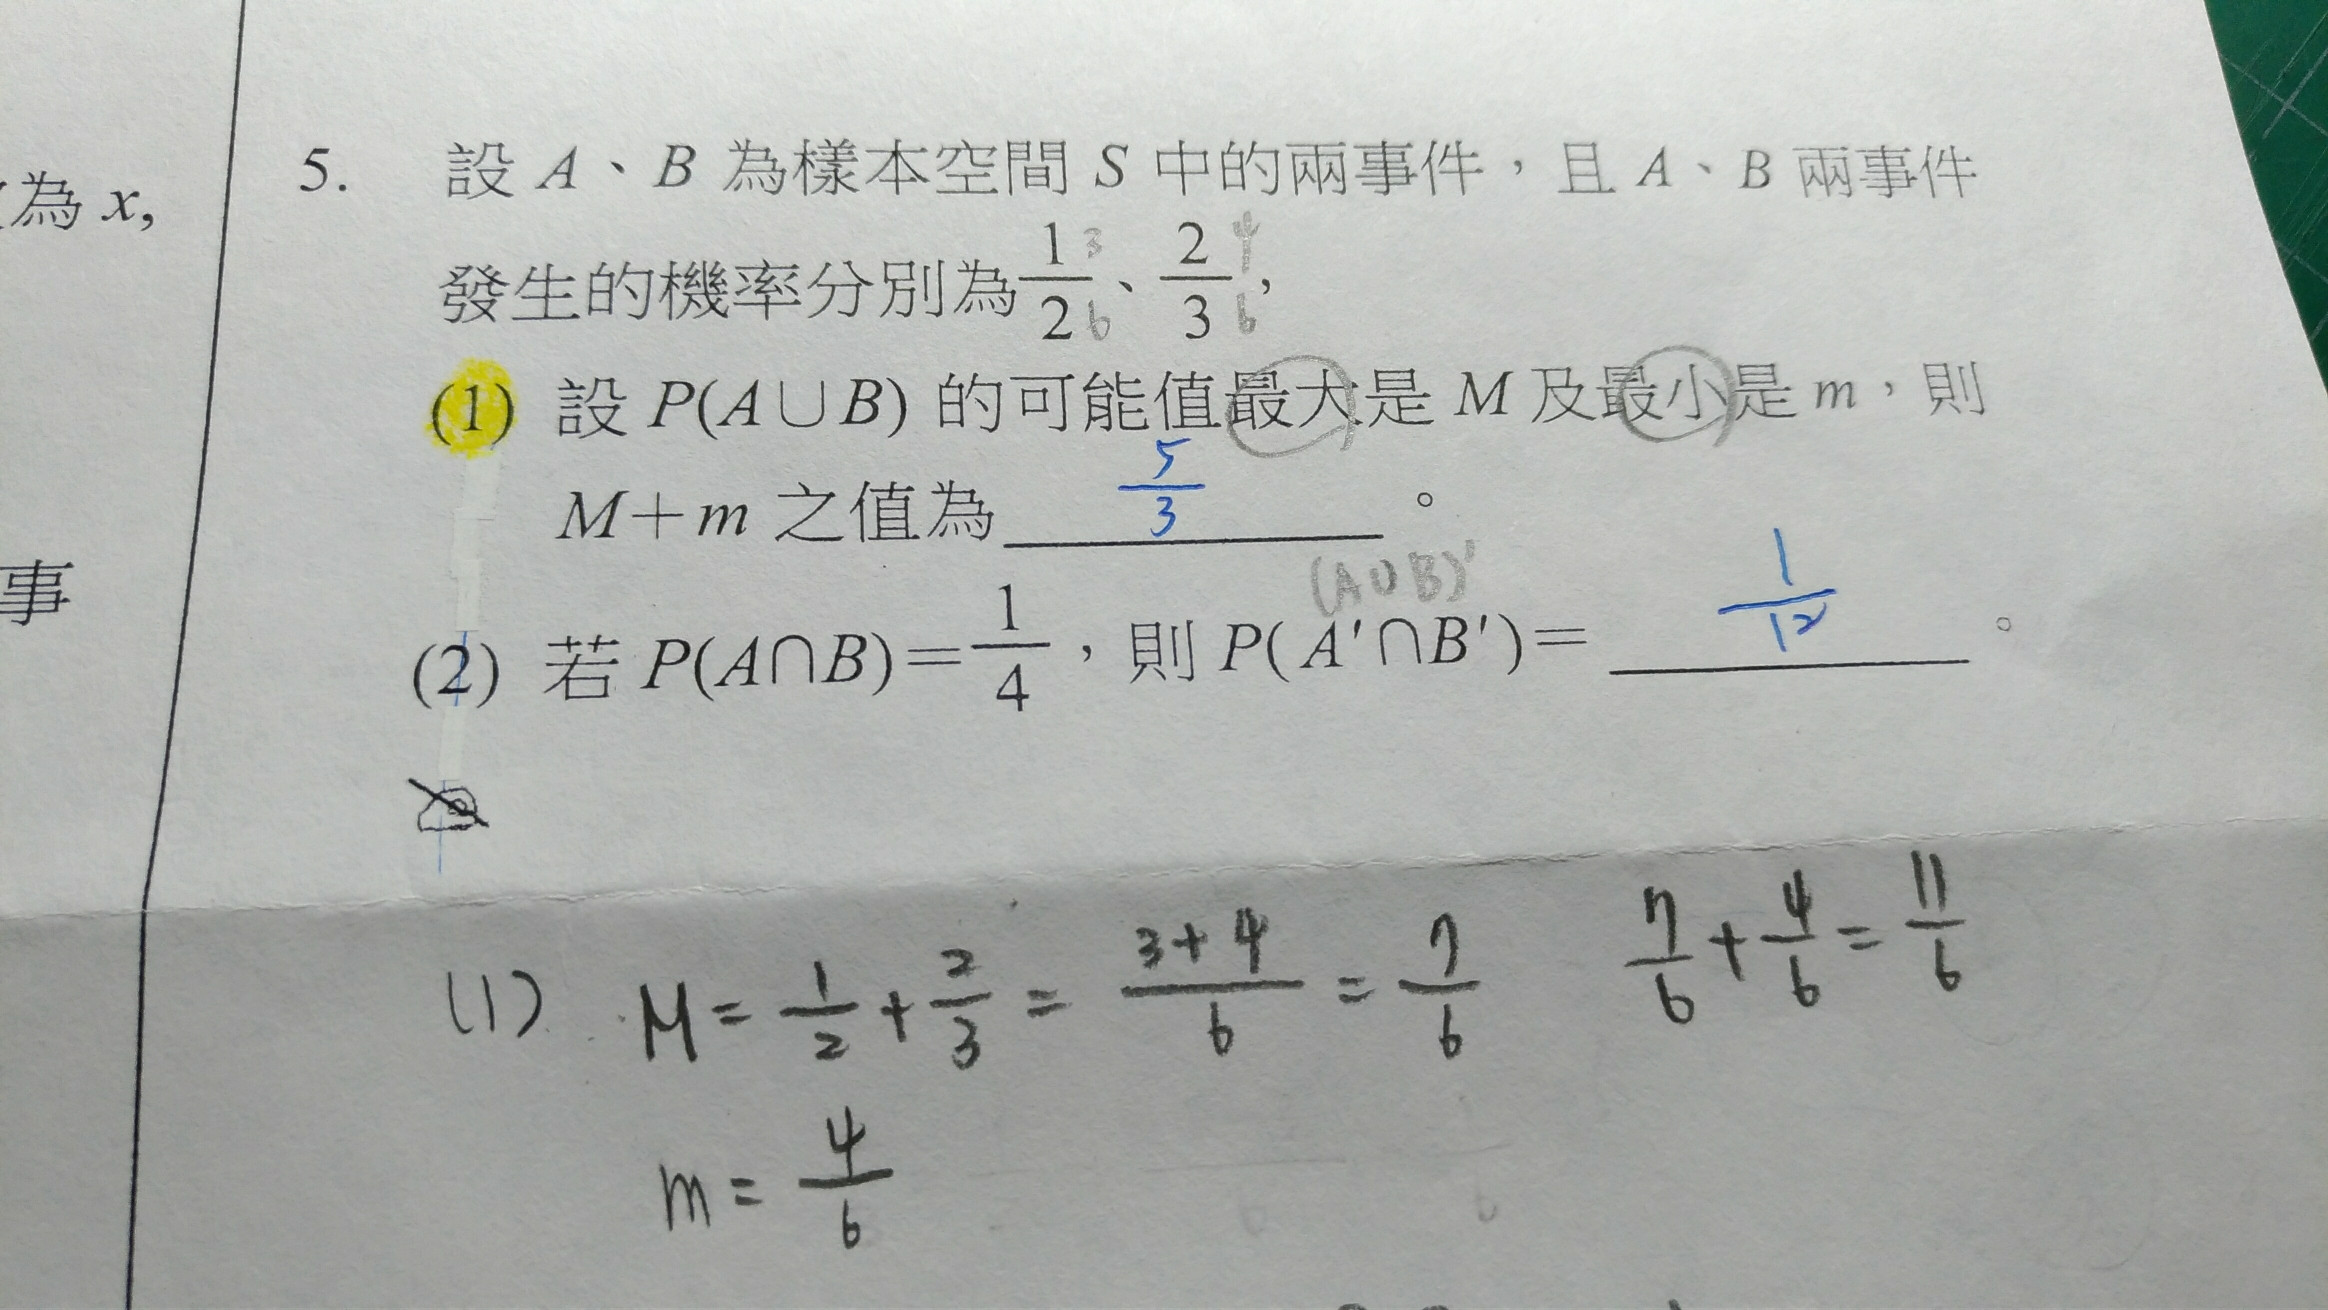 為 x,
事
5. 設 A、B 為樣本空間 S 中的兩事件，且 A、B 兩事件
發生的機率分別為 1/2 3/6、2/3 4/6,
(1) 設 P(A∪B) 的可能值最大是 M 及最小是 m，則
M+m 之值為 5/3 。
(A∪B)'
(2) 若 P(A∩B)=1/4，則 P(A'∩B')= 1/12 。
(1) M = 1/2 + 2/3 = 3+4/6 = 7/6 7/6 + 4/6 = 11/6
m = 4/6